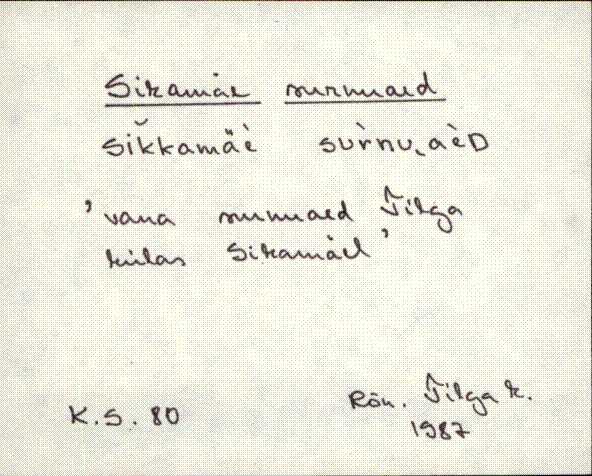 Sikamäe surnuaed
sik̆kamäè sùrnu‿aèD
'vana surnuaed Tilga
külas Sikamäel'
Rõu. Tilga k.
K.S. 80
1987